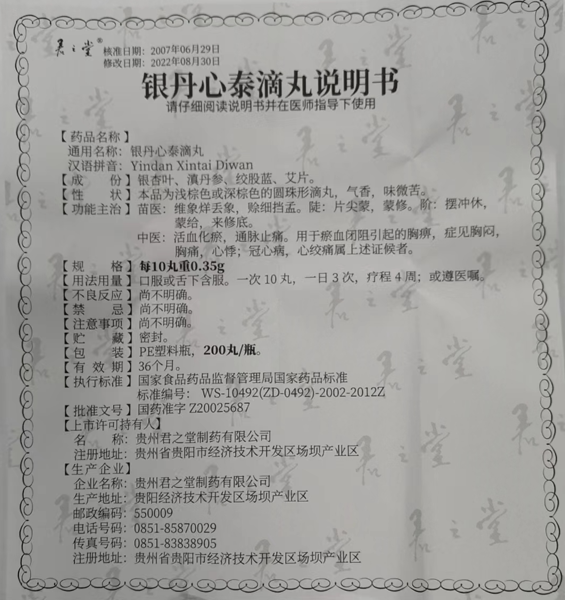 君之堂®
核准日期：2007年06月29日
修改日期：2022年08月30日
银丹心泰滴丸说明书
请仔细阅读说明书并在医师指导下使用
【药品名称】
通用名称：银丹心泰滴丸
汉语拼音：Yindan Xintai Diwan
【成 份】银杏叶、滇丹参、绞股蓝、艾片。
【性 状】本品为浅棕色或深棕色的圆珠形滴丸，气香，味微苦。
【功能主治】苗医：维象烊丢象，赊细挡孟。陡：片尖蒙，蒙修。阶：摆冲休，
蒙给，来修底。
中医：活血化瘀，通脉止痛。用于瘀血闭阻引起的胸痹，症见胸闷，
胸痛，心悸；冠心病，心绞痛属上述证候者。
【规 格】每10丸重0.35g
【用法用量】口服或舌下含服。一次10丸，一日3次，疗程4周；或遵医嘱。
【不良反应】尚不明确。
【禁 忌】尚不明确。
【注意事项】尚不明确。
【贮 藏】密封。
【包 装】PE塑料瓶，200丸/瓶。
【有 效 期】36个月。
【执行标准】国家食品药品监督管理局国家药品标准
标准编号： WS-10492(ZD-0492)-2002-2012Z
【批准文号】国药准字 Z20025687
【上市许可持有人】
名 称：贵州君之堂制药有限公司
注册地址：贵州省贵阳市经济技术开发区场坝产业区
【生产企业】
企业名称：贵州君之堂制药有限公司
生产地址：贵阳经济技术开发区场坝产业区
邮政编码：550009
电话号码：0851-85870029
传真号码：0851-83838905
注册地址：贵州省贵阳市经济技术开发区场坝产业区